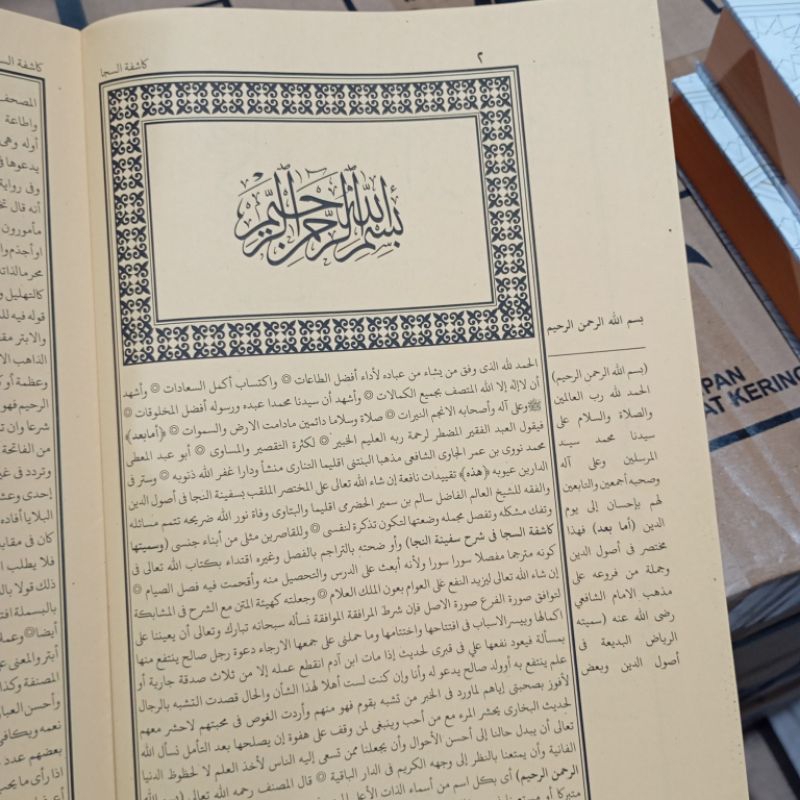 ٢
كاشفة السجا
بسم الله الرحمن الرحيم
الحمد لله الذى وفق من يشاء من عباده لأداء أفضل الطاعات ۞ واكتساب أكمل السعادات ۞ وأشهد
أن لا إله إلا الله المتصف بجميع الكمالات ۞ وأشهد أن سيدنا محمدا عبده ورسوله أفضل المخلوقات ۞
ﷺ وعلى آله وأصحابه الانجم النيرات ۞ صلاة وسلاما دائمين مادامت الارض والسموات ۞ ﴿أما بعد﴾
فيقول العبد الفقير المضطر لرحمة ربه العليم الخبير ۞ لكثرة التقصير والمساوى ۞ أبو عبد المعطى
محمد نووى بن عمر الجاوى الشافعى مذهبا البنتنى اقليما التنارى منشأ ودارا غفر الله ذنوبه ۞ وستر فى
الدارين عيوبه ﴿هذه﴾ تقييدات نافعة إن شاء الله تعالى على المختصر الملقب بسفينة النجا فى أصول الدين
والفقه للشيخ العالم الفاضل سالم بن سمير الحضرمى اقليما والبتاوى وفاة نور الله ضريحه تتمم مسائله
وتفك مشكله وتفصل مجمله وضعتها لتكون تذكرة لنفسى ۞ وللقاصرين مثلى من أبناء جنسى (وسميتها
كاشفة السجا فى شرح سفينة النجا) وأو ضحته بالتراجم بالفصل وغيره اقتداء بكتاب الله تعالى فى
كونه مترجما مفصلا سورا سورا ولأنه أبعث على الدرس والتحصيل منه وأقحمت فيه فصل الصيام ۞
إن شاء الله تعالى ليزيد النفع على العوام بعون الملك العلام ۞ وجعلته كهيئة المتن مع الشرح فى المشابكة
لتوافق صورة الفرع صورة الاصل فإن شرط المرافقة الموافقة نسأله سبحانه تبارك وتعالى أن يعيننا على
اكمالها وبيسر الاسباب فى افتتاحها واختتامها وما حملنى على جمعها الارجاء دعوة رجل صالح ينتفع منها
بمسألة فيعود نفعها على فى قبرى لحديث إذا مات ابن آدم انقطع عمله إلا من ثلاث صدقة جارية أو
علم ينتفع به أوولد صالح يدعو له وأنا وإن كنت لست أهلا لهذا الشأن والحال قصدت التشبه بالرجال
لأفوز بصحبتى إياهم لماورد فى الخبر من تشبه بقوم فهو منهم وأردت الغوص فى محبتهم لاحشر معهم
لحديث البخارى يحشر المرء مع من أحب وينبغى لمن وقف على هفوة إن يصلحها بعد التأمل نسأل الله
تعالى أن يبدل حالنا إلى أحسن الأحوال وأن يجعلنا ممن تسعى إليه الناس لأخذ العلم لا لحظوظ الدنيا
الفانية وأن يمتعنا بالنظر إلى وجهه الكريم فى الدار الباقية ۞ قال المصنف رحمه الله تعالى (بسم الله
الرحمن الرحيم) أى بكل اسم من أسماء الذات
بسم الله الرحمن الرحيم
(بسم الله الرحمن الرحيم)
الحمد لله رب العالمين
والصلاة والسلام على
سيدنا محمد سيد
المرسلين وعلى آله
وصحبه أجمعين والتابعين
لهم بإحسان إلى يوم
الدين (أما بعد) فهذا
مختصر فى أصول الدين
وجملة من فروعه على
مذهب الامام الشافعي
رضى الله عنه (سميته
الرياض البديعة فى
أصول الدين وبعض
المصحف
واطاعة
أوله وهى
يدعوها
وفى رواية
أنه قال
مأمورون
كالتهليل و
قوله فيه
والابتر
الذاهب
وعظمة
الرحيم فهو
شرعا وان
من الفاتحة
وتردد فى
إحدى وعش
البلايا أفاده
كان فى مقاب
فلا يطلب
ذلك قولا
بالبسملة
أيضا ۞ وعمل
أبتر والمعنى
المصنفة وكذا
وأحسن العبار
نعمه ويكافى
بعضهم عدد
اذا رأى ما يحب
PAN
AT KERING